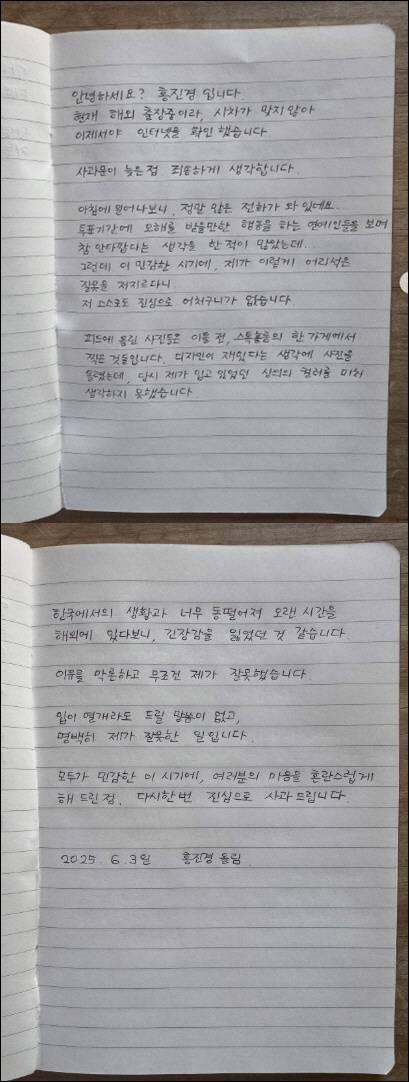 안녕하세요? 홍진경 입니다
현재 해외 출장중이라, 시차가 맞지 않아
이제서야 인터넷을 확인했습니다
사과문이 늦은점 죄송하게 생각합니다.
아침에 일어나보니, 정말 많은 전화가 와 있네요..
투표기간에 오해를 받을만한 행동을 하는 연예인들을 보며
참 안타깝다는 생각을 한 적이 많았는데...
그런데 이 민감한 시기에, 제가 이렇게 어리석은
잘못을 저지르다니.
저 스스로도 진심으로 어처구니가 없습니다
피드에 올린 사진들은 이틀 전, 스톡홀름의 한 가게에서
찍은 것들입니다. 디자인이 재밌다는 생각에 사진을
올렸는데, 당시 제가 입고 있었던 상의의 컬러를 미처
생각하지 못했습니다.
한국에서의 생활과 너무 동떨어져 오랜 시간을
해외에 있다보니, 긴장감을 잃었던 것 같습니다.
이유를 막론하고 무조건 제가 잘못했습니다.
입이 열개라도 드릴 말씀이 없고,
명백히 제가 잘못한 일입니다.
모두가 민감한 이 시기에, 여러분의 마음을 혼란스럽게
해 드린 점. 다시한번 진심으로 사과드립니다.
2025. 6.3일 홍진경 올림.